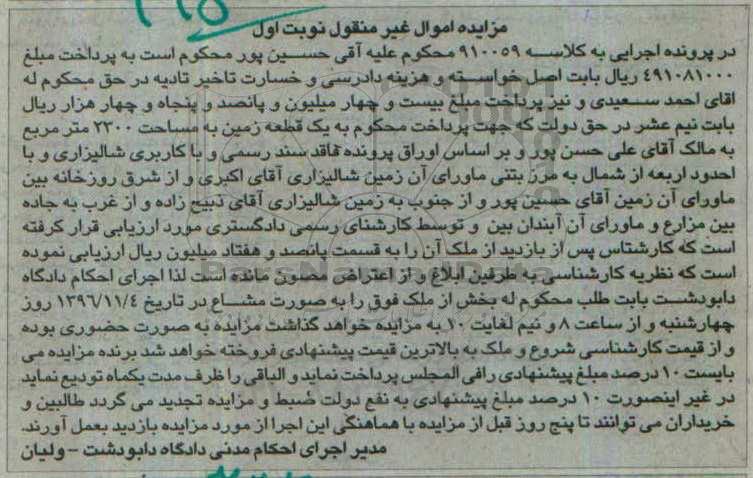 مزایده اموال غیر منقول نوبت اول
در پرونده اجرایی به کلاسه ۹۱۰۰۵۹ محکوم علیه آقی حسین پور محکوم است به پرداخت مبلغ
۴۹۱۰۸۱۰۰۰ ریال بابت اصل خواسته و هزینه دادرسی و خسارت تاخیر تادیه در حق محکوم له
اقای احمد سعیدی و نیز پرداخت مبلغ بیست و چهار میلیون و پانصد و پنجاه و چهار هزار ریال
بابت نیم عشر در حق دولت که جهت پرداخت محکوم به یک قطعه زمین به مساحت ۲۳۰۰ متر مربع
به مالک آقای علی حسن پور و بر اساس اوراق پرونده فاقد سند رسمی و با کاربری شالیزاری و با
احدود اربعه از شمال به مرز بتنی ماورای آن زمین شالیزاری آقای اکبری و از شرق روزخانه بین
ماورای آن زمین آقای حسین پور و از جنوب به زمین شالیزاری آقای ذبیح زاده و از غرب به جاده
بین مزارع و ماورای آن آبندان بین و توسط کارشنای رسمی دادگستری مورد ارزیابی قرار گرفته
است که کارشتاس پس از بازدید از ملک آن را به قسمت پانصد و هفتاد میلیون ریال ارزیابی نموده
است که نظریه کارشناسی به طرفین ابلاغ و از اعتراض مصون مانده است لذا اجرای احکام دادگاه
دابودشت بابت طلب محکوم له بخش از ملک فوق را به صورت مشاع در تاریخ ۱۳۹۶/۱۱/۴ روز
چهارشنبه و از ساعت ۸ و نیم لغایت ۱۰ به مزایده خواهد گذاشت مزایده به صورت حضوری بوده
و از قیمت کارشناسی شروع و ملک به بالاترین قیمت پیشنهادی فروخته خواهد شد برنده مزایده می
بایست ۱۰ درصد مبلغ پیشنهادی رافی المجلس پرداخت نماید و الباقی را ظرف مدت یکماه تودیع نماید
در غیر اینصورت ۱۰ درصد مبلغ پیشنهادی به نفع دولت ضبط و مزایده تجدید می گردد طالبین و
خریداران می توانند تا پنج روز قبل از مزایده با هماهنگی این اجرا از مورد مزایده بازدید بعمل آورند.
مدیر اجرای احکام مدنی دادگاه دابودشت - ولیان